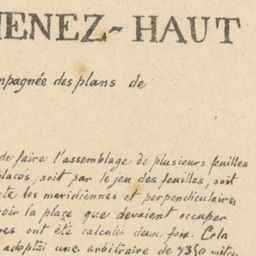 MENEZ-HAUT
mpagnée des plans de
de faire l'assemblage de plusieurs feuilles
placés, soit par le jeu des feuilles, soit
te les méridiennes et perpendiculaires
oir la place que devaient occuper
res ont été calculés deux fois. Cela
adopté une arbitraire de 7350 mètres